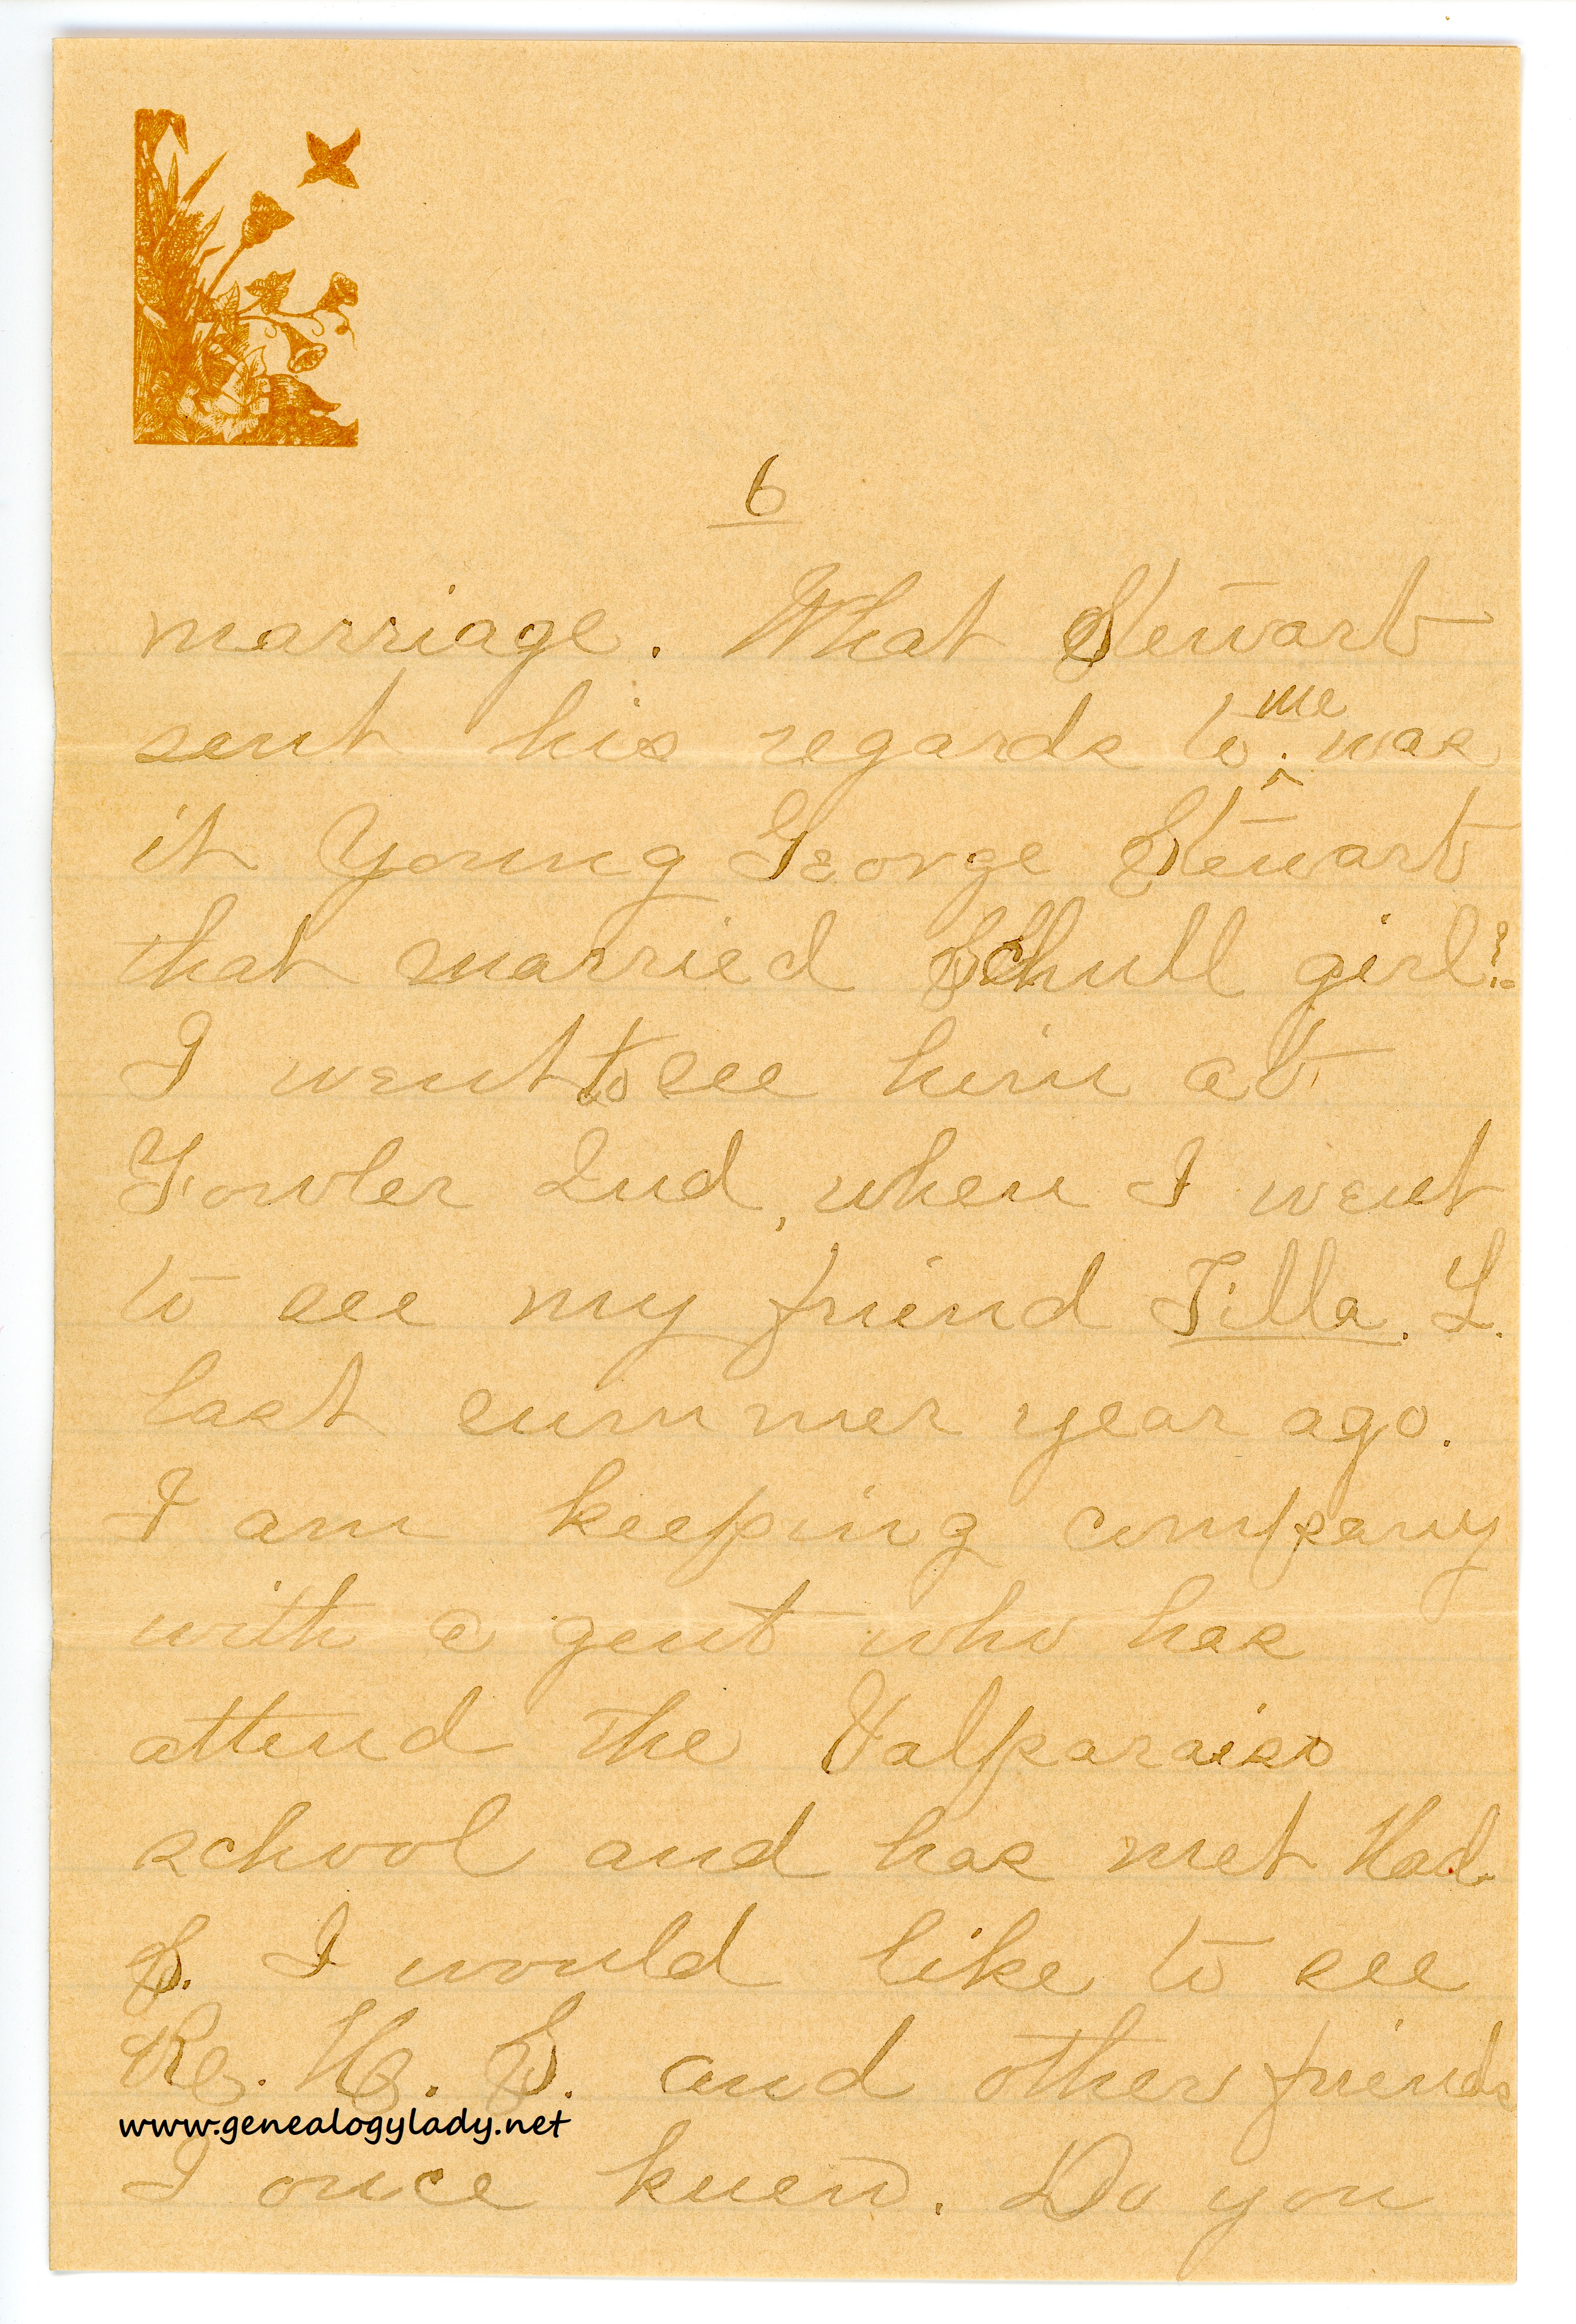 6
marriage. What Stewart
me
sent his regards to. was
^
it Young George Stewart
that married Schull girl?
I went to see him at
Fowler Ind, when I went
to see my friend Tilla. L.
last summer year ago.
I am keeping company
with a gent who has
attend the Valparaiso
school and has met Had
S. I would like to see
Re. H. S. and other friends
www.genealogylady.net
I once knew. Do you